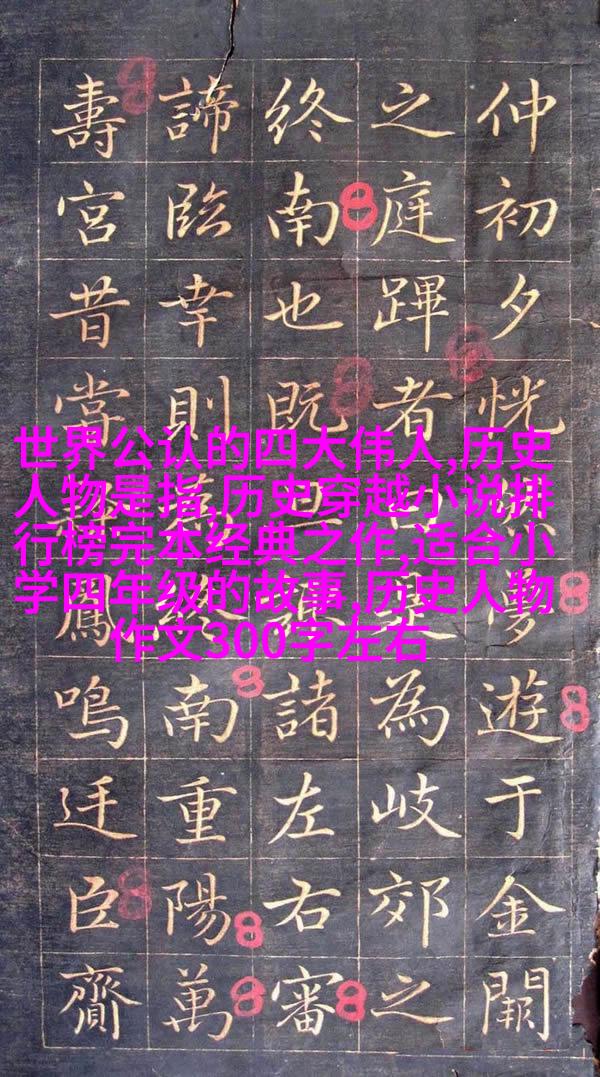 仲初夕恍夢遊于金闕
之庭蹕者是為岐郊之
終南也既諸左右審
諦臨幸則終南重陽萬
壽宮昔常鳳鳴廷臣齎
世界公认的四大伟人,历史
人物是指,历史穿越小说排
行榜完本经典之作,适合小
学四年级的故事,历史人物
作文300字左右